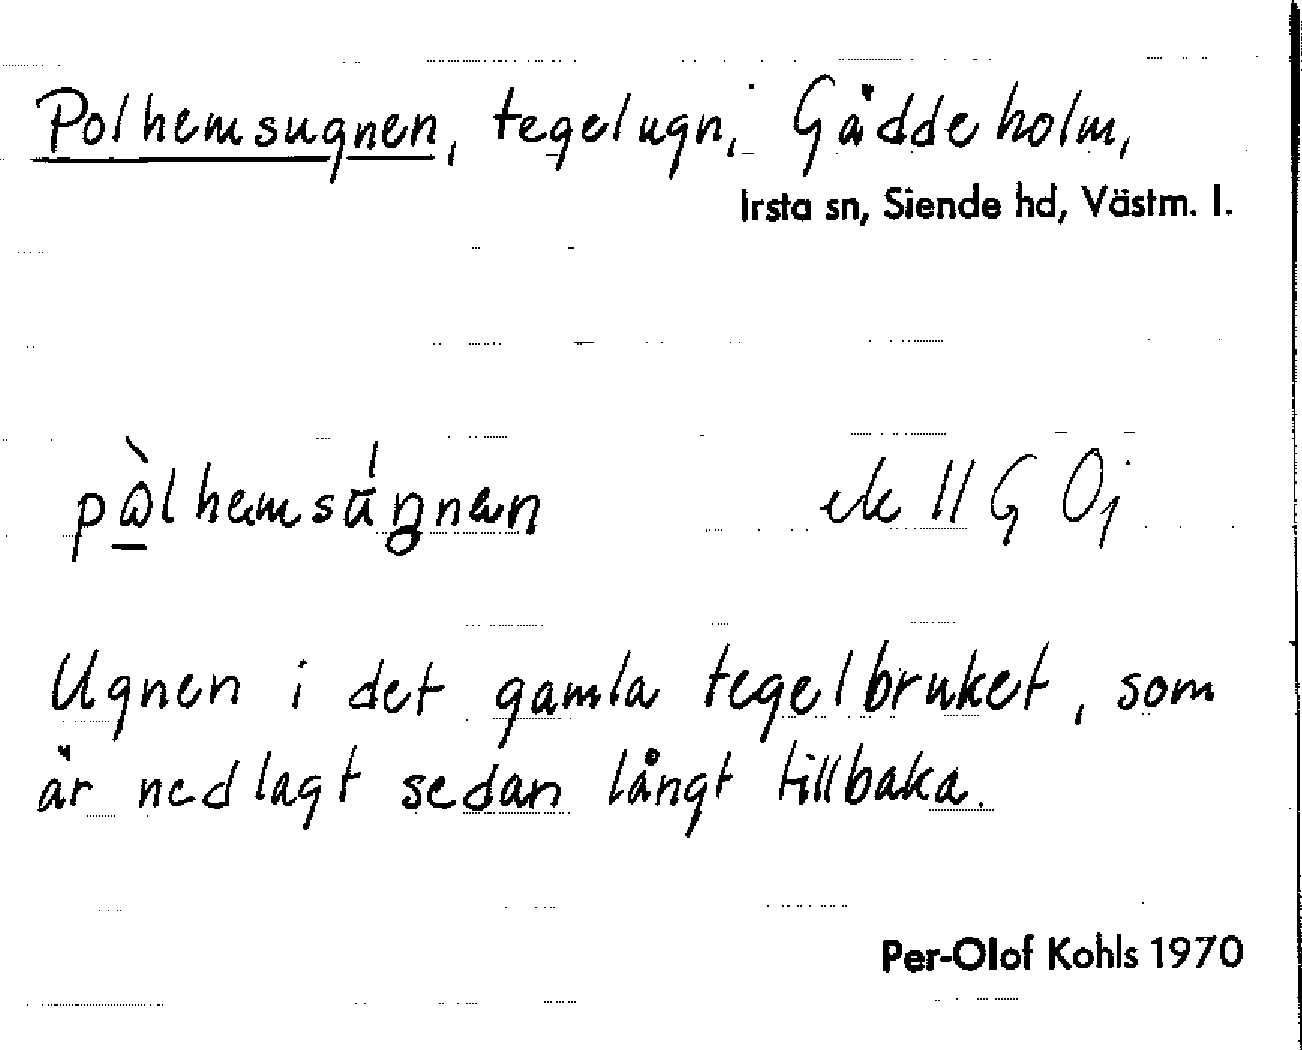 Polhemsugnen, tegelugn, Gäddeholm,
Irsta sn, Siende hd, Västm. l.
ek 11 G 0j
Ugnen i det gamla tegelbruket, som
är nedlagt sedan långt tillbaka.
Per-Olof Kohls 1970